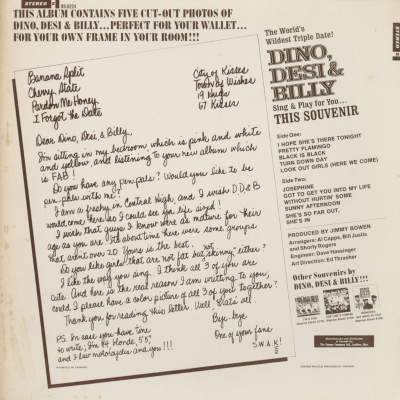 STEREO
RS-6224
THIS ALBUM CONTAINS FIVE CUT-OUT PHOTOS OF
DINO, DESI & BILLY...PERFECT FOR YOUR WALLET...
FOR YOUR OWN FRAME IN YOUR ROOM!!!
Banana Split
Cherry State
Pardon Me Honey
I Forgot the Date
City of Kisses
Town of Wishes
19 Hugs
67 Kisses
Dear Dino, Desi & Billy,
I'm sitting in my bedroom which is pink and white
and yellow, and listening to your new album which
is FAB!
Do you have any pen pals? Would you like to be
pen pals with me?
I am a freshy in Central High, and I wish D, D & B
would come here so I could see you life sized!
I wish that guys I know were as mature for their
age as you are. Oh about time here were some groups
that weren't over 20. Yours is the best.
Do you like girls that are not fat but not "skinny" either?
I like the way you sing. I think all 3 of you are
cute. And here is the real reason I am writting to you,
could I please have a color picture of all 3 of you together?
Thank you for reading this letter. Well that's all.
Bye-bye
One of your fans
S.W.A.K!
P.S. In case you have time
to write, I'm 14, blonde, 5'5",
and I luv motorcycles and you!!!
The World's
Wildest Triple Date!
DINO,
DESI &
BILLY
Sing & Play for You...
THIS SOUVENIR
Side One:
I HOPE SHE'S THERE TONIGHT
PRETTY FLAMINGO
BLACK IS BLACK
TURN DOWN DAY
LOOK OUT GIRLS (HERE WE COME)
Side Two:
JOSEPHINE
GOT TO GET YOU INTO MY LIFE
WITHOUT HURTIN' SOME
SUNNY AFTERNOON
SHE'S SO FAR OUT,
SHE'S IN
PRODUCED BY JIMMY BOWEN
Arrangers: Al Capps, Bill Justis
and Shorty Rogers
Engineer: Dave Hassinger
Art Direction: Ed Thrasher
Other Souvenirs by
DINO, DESI & BILLY!!!